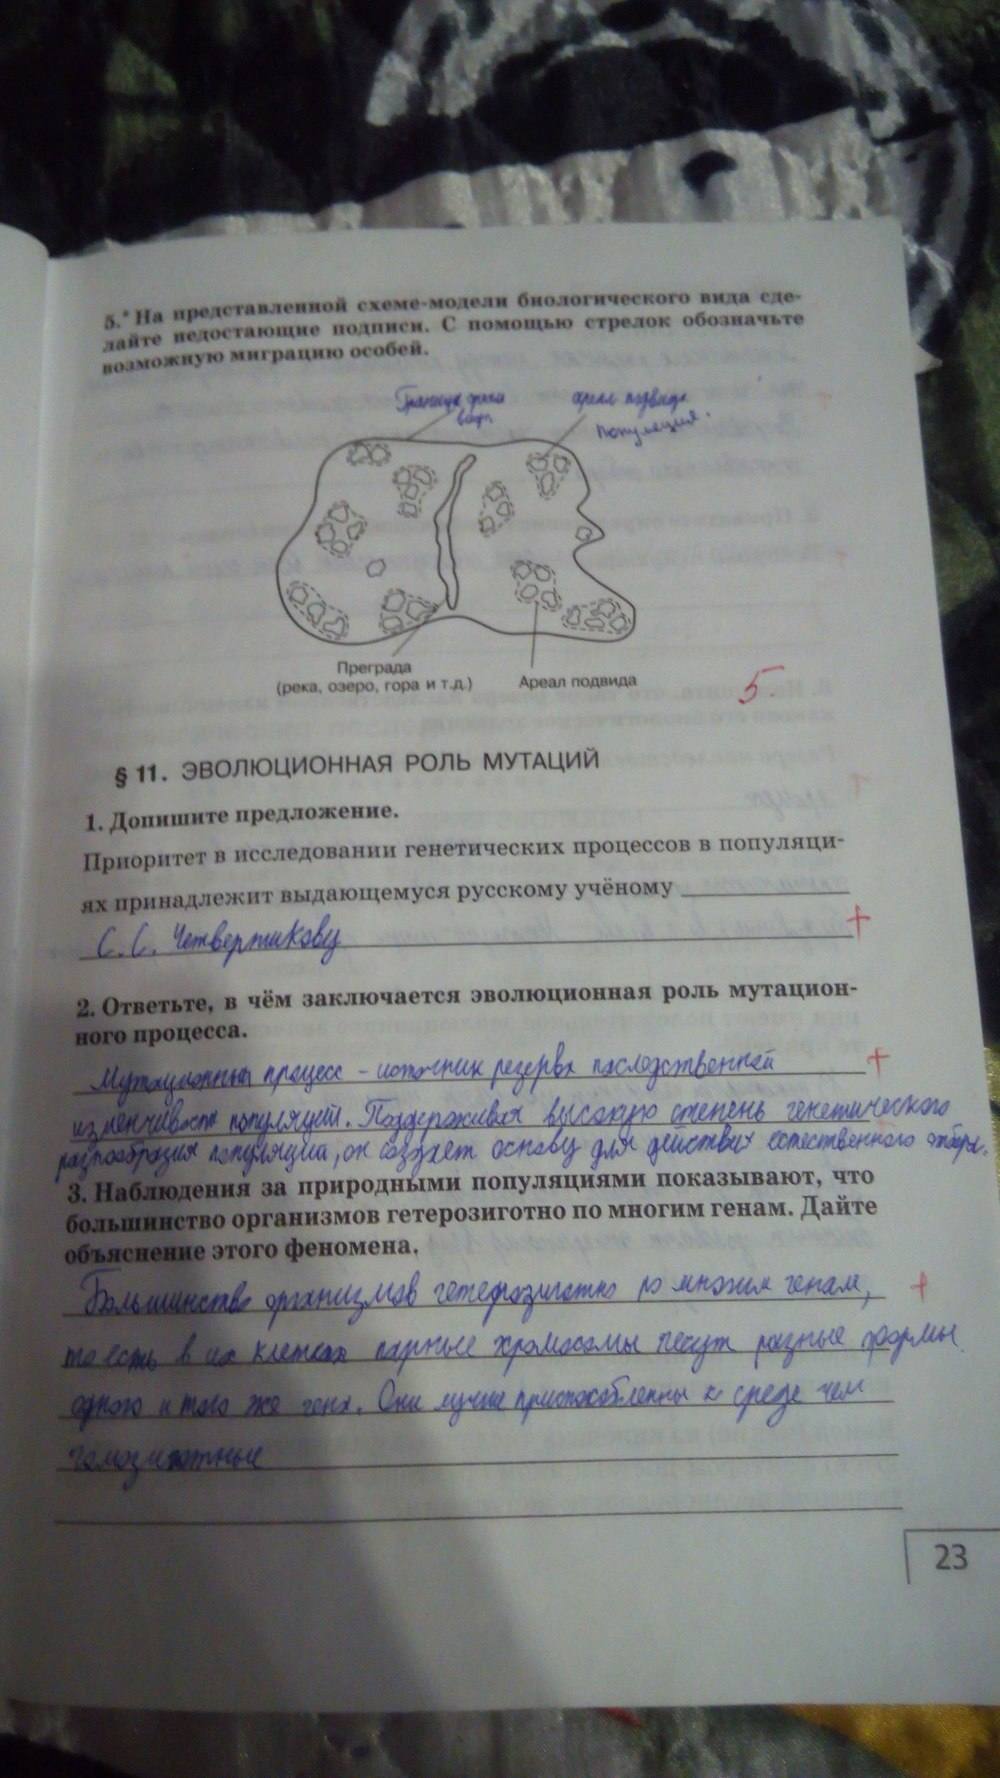 5.* На представленной схеме-модели биологического вида сде-
лайте недостающие подписи. С помощью стрелок обозначьте
возможную миграцию особей.
Граница ареала ареал подвида
вида популяция.
Преграда
(река, озеро, гора и т.д.) Ареал подвида
5.
§ 11. ЭВОЛЮЦИОННАЯ РОЛЬ МУТАЦИЙ
1. Допишите предложение.
Приоритет в исследовании генетических процессов в популяци-
ях принадлежит выдающемуся русскому учёному
С.С. Четвертикову +
2. Ответьте, в чём заключается эволюционная роль мутацион-
ного процесса.
Мутационный процесс - источник резерва наследственной +
изменчивости популяций. Поддерживая высокую степень генетического
разнообразия популяций, он создает основу для действия естественного отбора.
3. Наблюдения за природными популяциями показывают, что
большинство организмов гетерозиготно по многим генам. Дайте
объяснение этого феномена.
Большинство организмов гетерозиготно по многим генам, +
то есть в их клетках парные хромосомы несут разные формы
одного и того же гена. Они лучше приспособлены к среде чем
гомозиготные
23